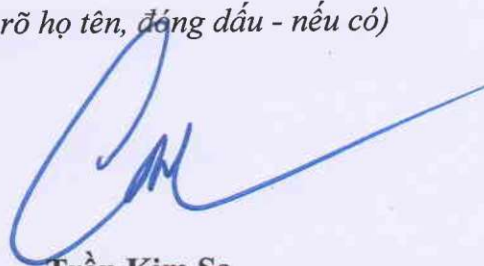 rõ họ tên, đóng dấu - nếu có)
Trần Kim Sa